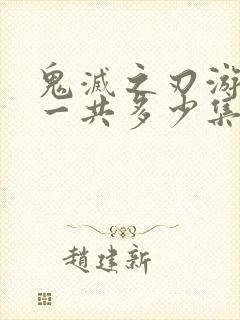 鬼滅之刃游
一共多少集
趙建新